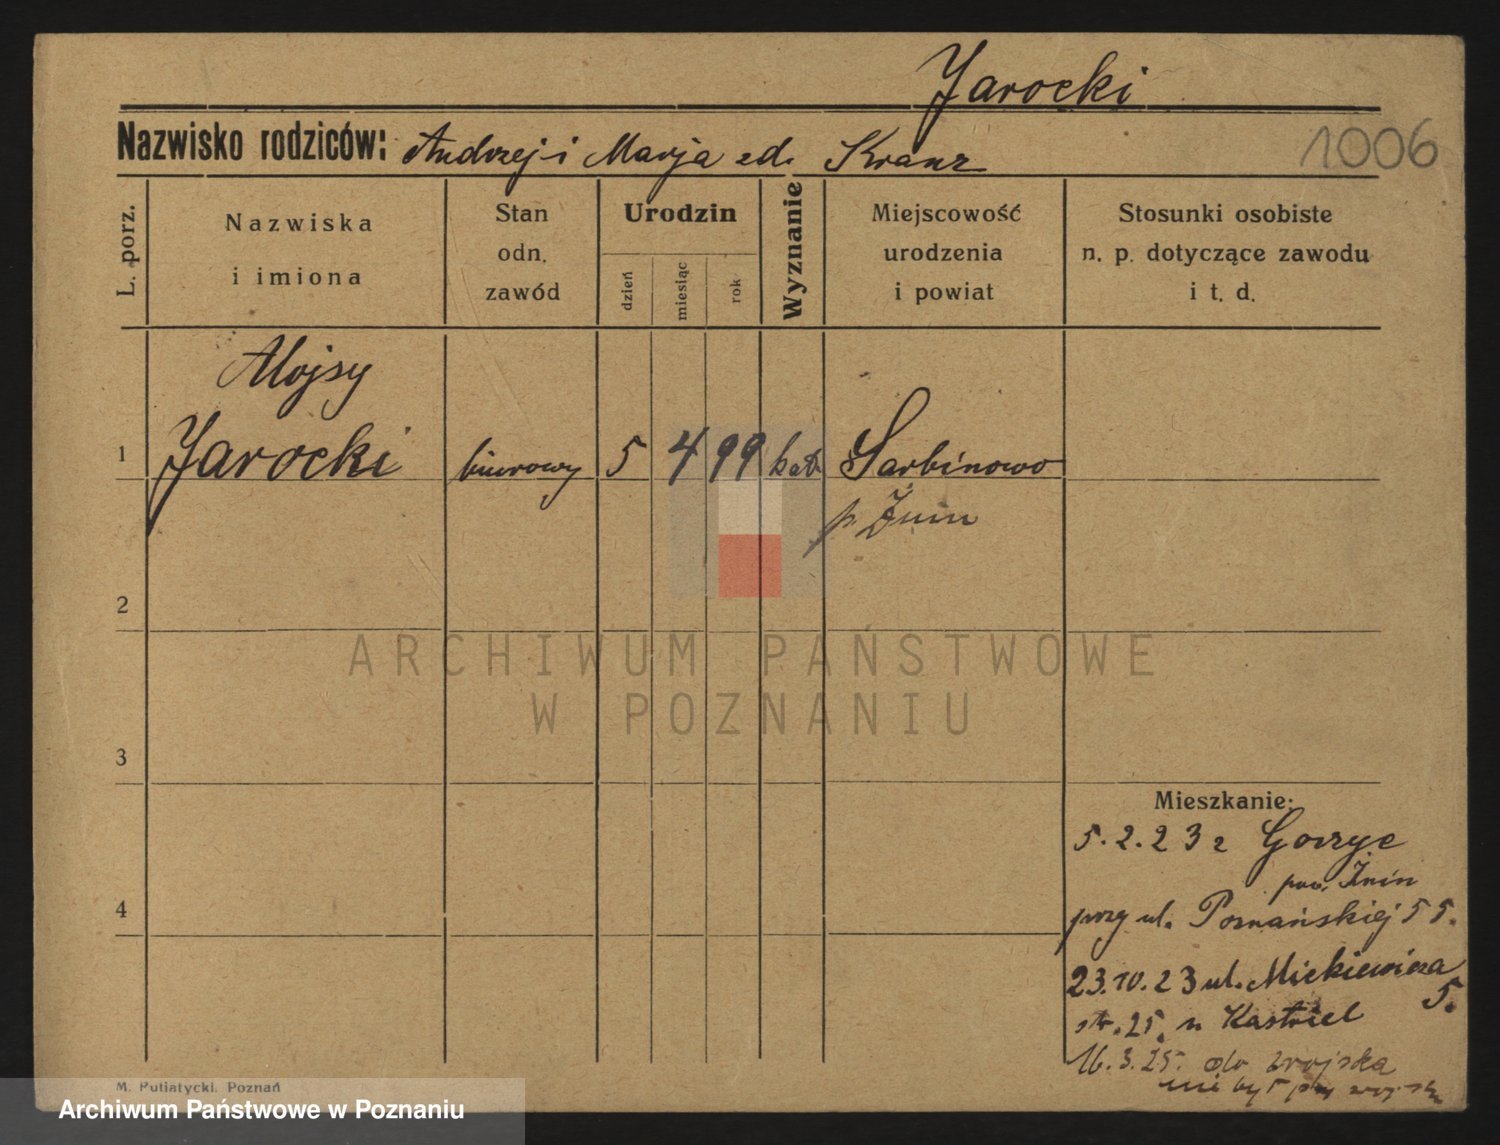 Jarocki
Nazwisko rodziców: Andrzej i Marja zd. Kranz
1006
L. porz.
Nazwiska
i imiona
Stan
odn.
zawód
Urodzin
dzień
miesiąc
rok
Wyznanie
Miejscowość
urodzenia
i powiat
Stosunki osobiste
n. p. dotyczące zawodu
i t. d.
Alojsy
1 Jarocki biurowy 5 4 99 kat. Sarbinowo
p. Żnin
2
ARCHIWUM PAŃSTWOWE
W POZNANIU
3
Mieszkanie:
5.2.23 z Gorzyc
pow. Żnin
4
przy ul. Poznańskiej 55.
23.10.23 ul. Mickiewicza
5.
str. 25. u Kastriel
16.3.25. do wojska
nie był przy
M. Putiatycki. Poznań
Archiwum Państwowe w Poznaniu